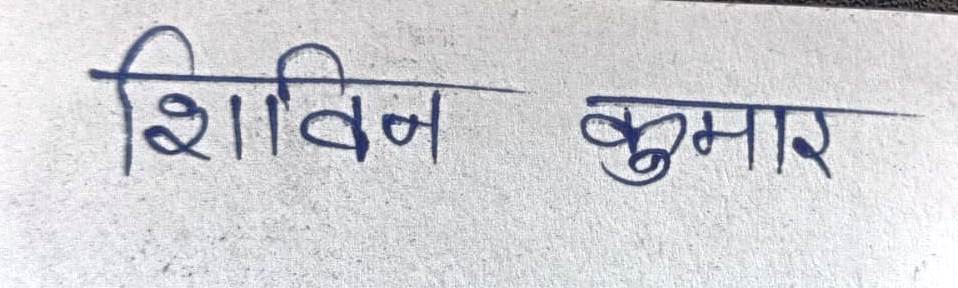 शिविन कुमार